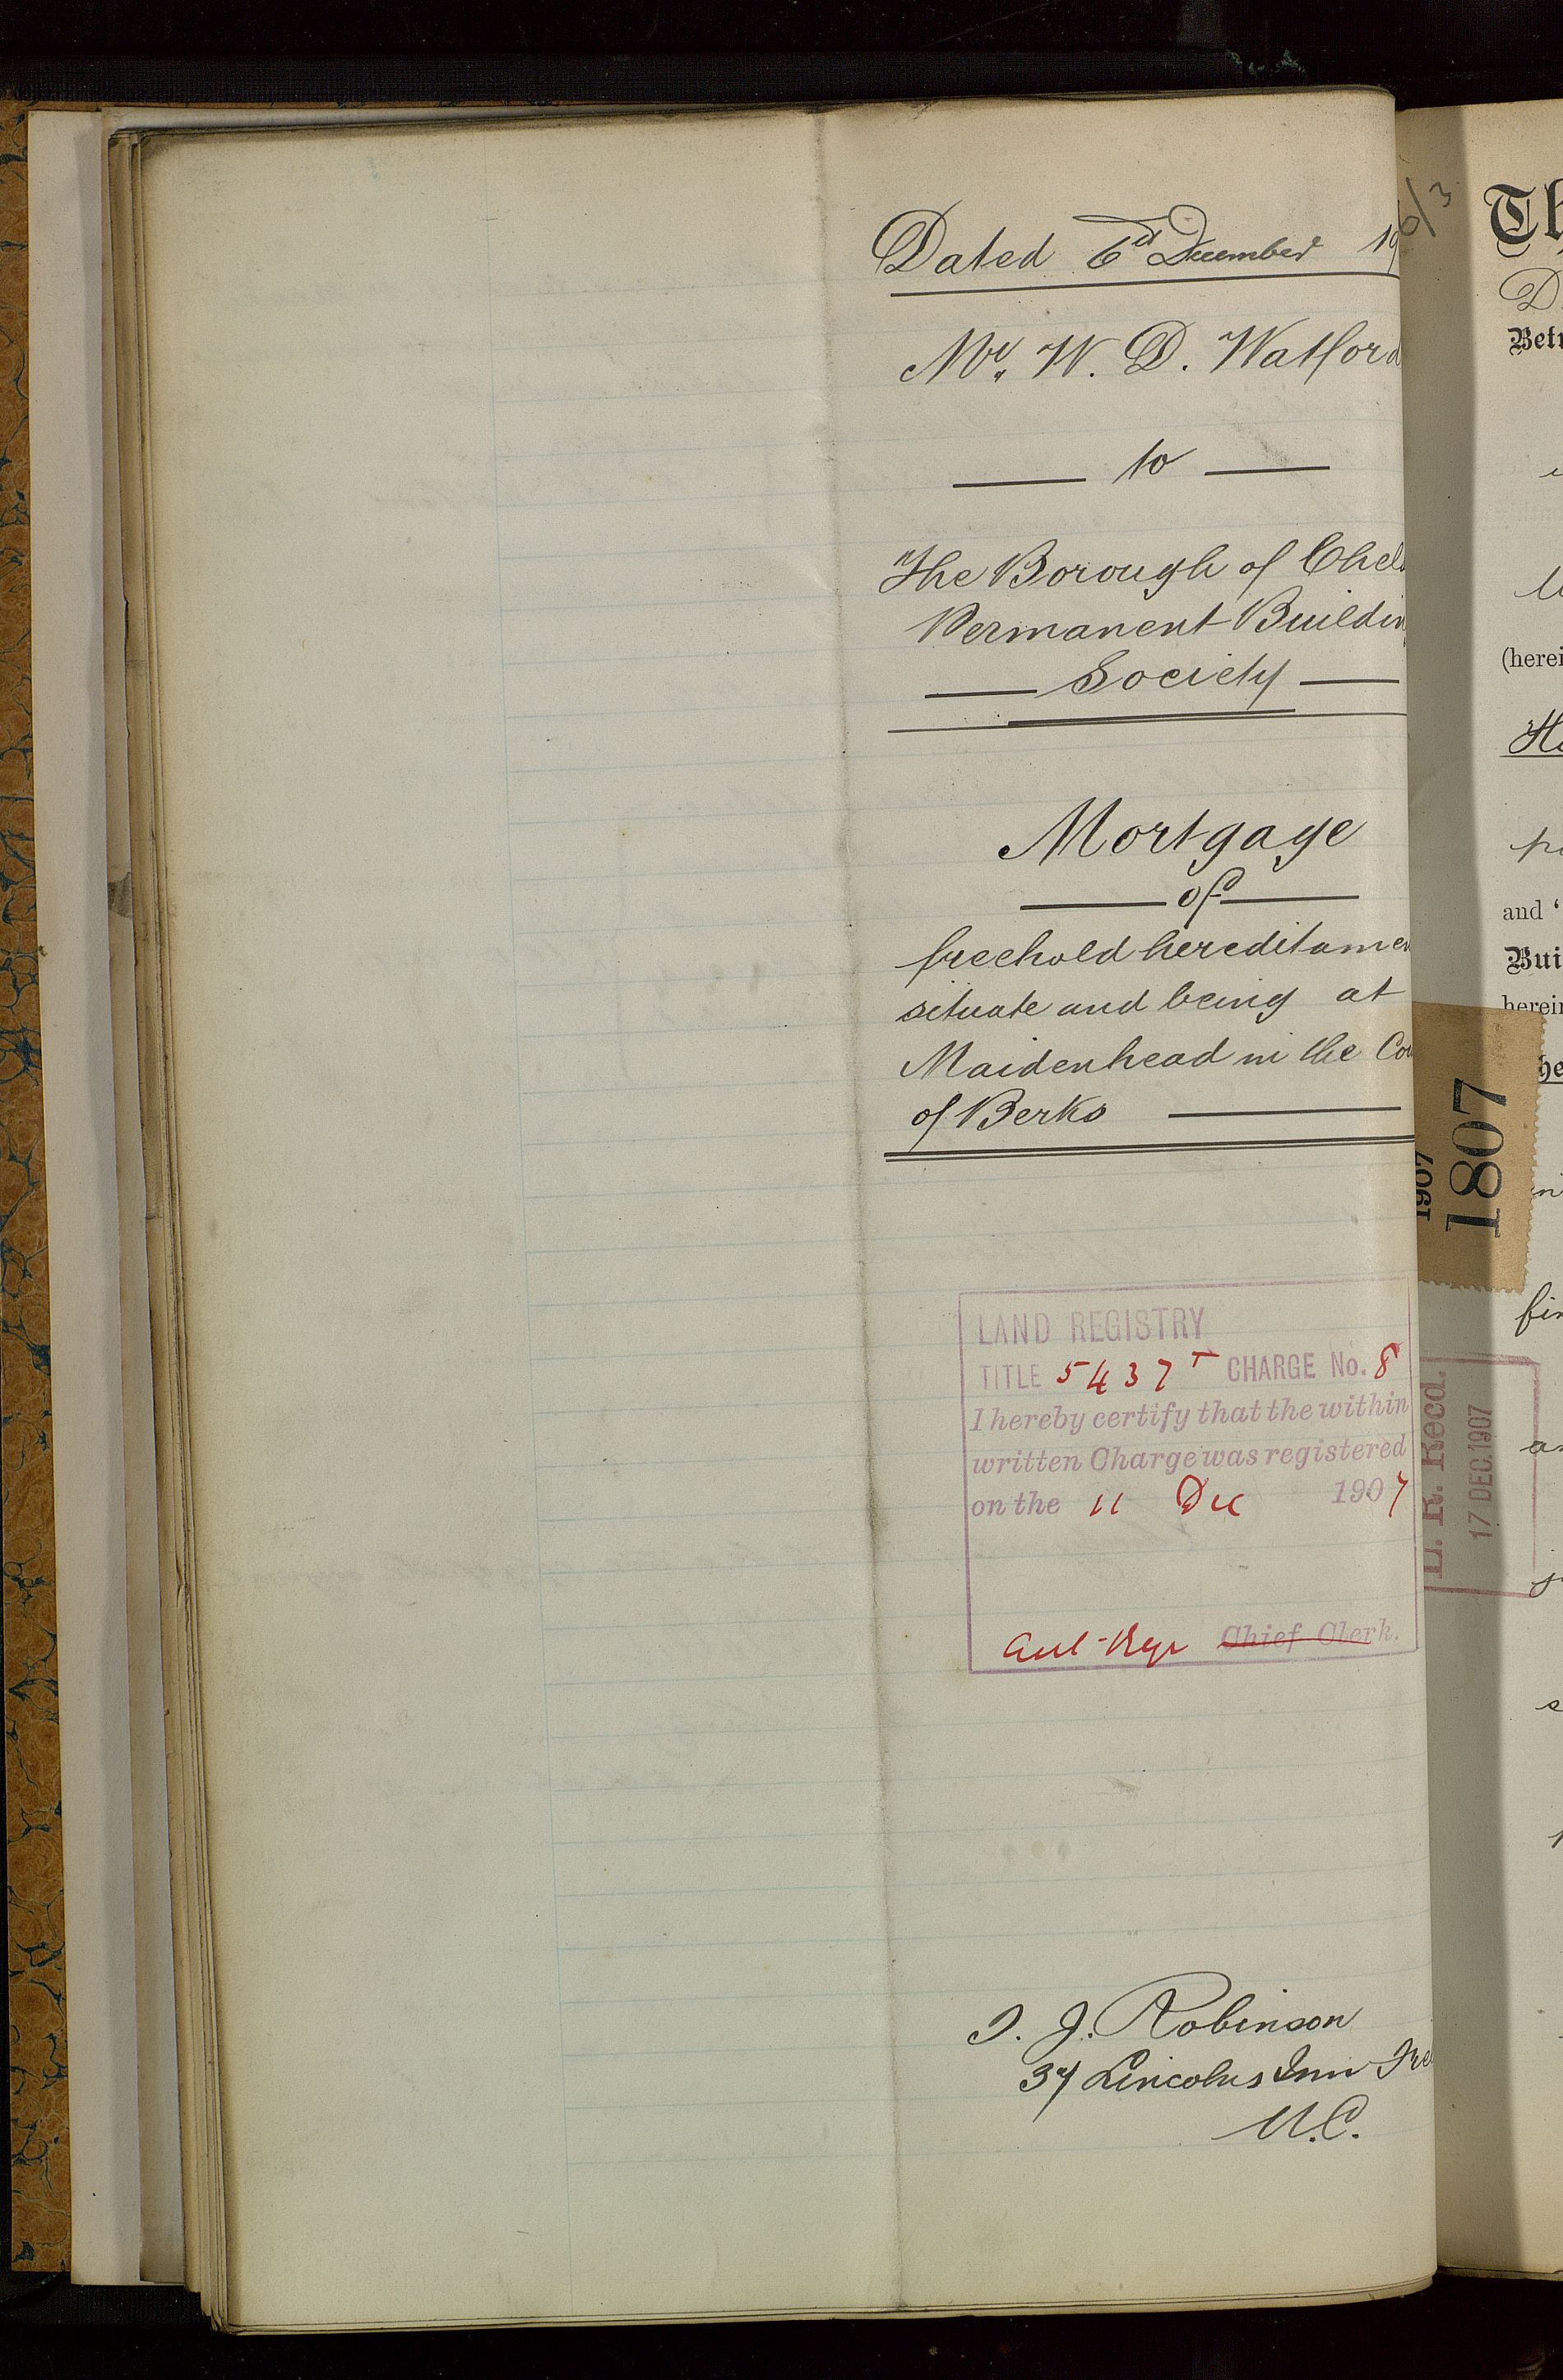 Dated 6th December 19
6/3
Mr. W. D. Watford
to
The Borough of Chel
Permanent Buildin
Society
Mortgage
of
freehold hereditamen
situate and being at
Maidenhead in the Cou
of Berks
LAND REGISTRY
TITLE 5437 T CHARGE No. 8
I hereby certify that the within
written Charge was registered
on the 11 Dec 1907
Chief Clerk.
J. J. Robinson
37 Lincolns Inn Fie
W.C.
Th
D
Betw
(herei
He
and '
Bui
herein
1907
1807
fir
L. R. Recd.
17 DEC. 1907